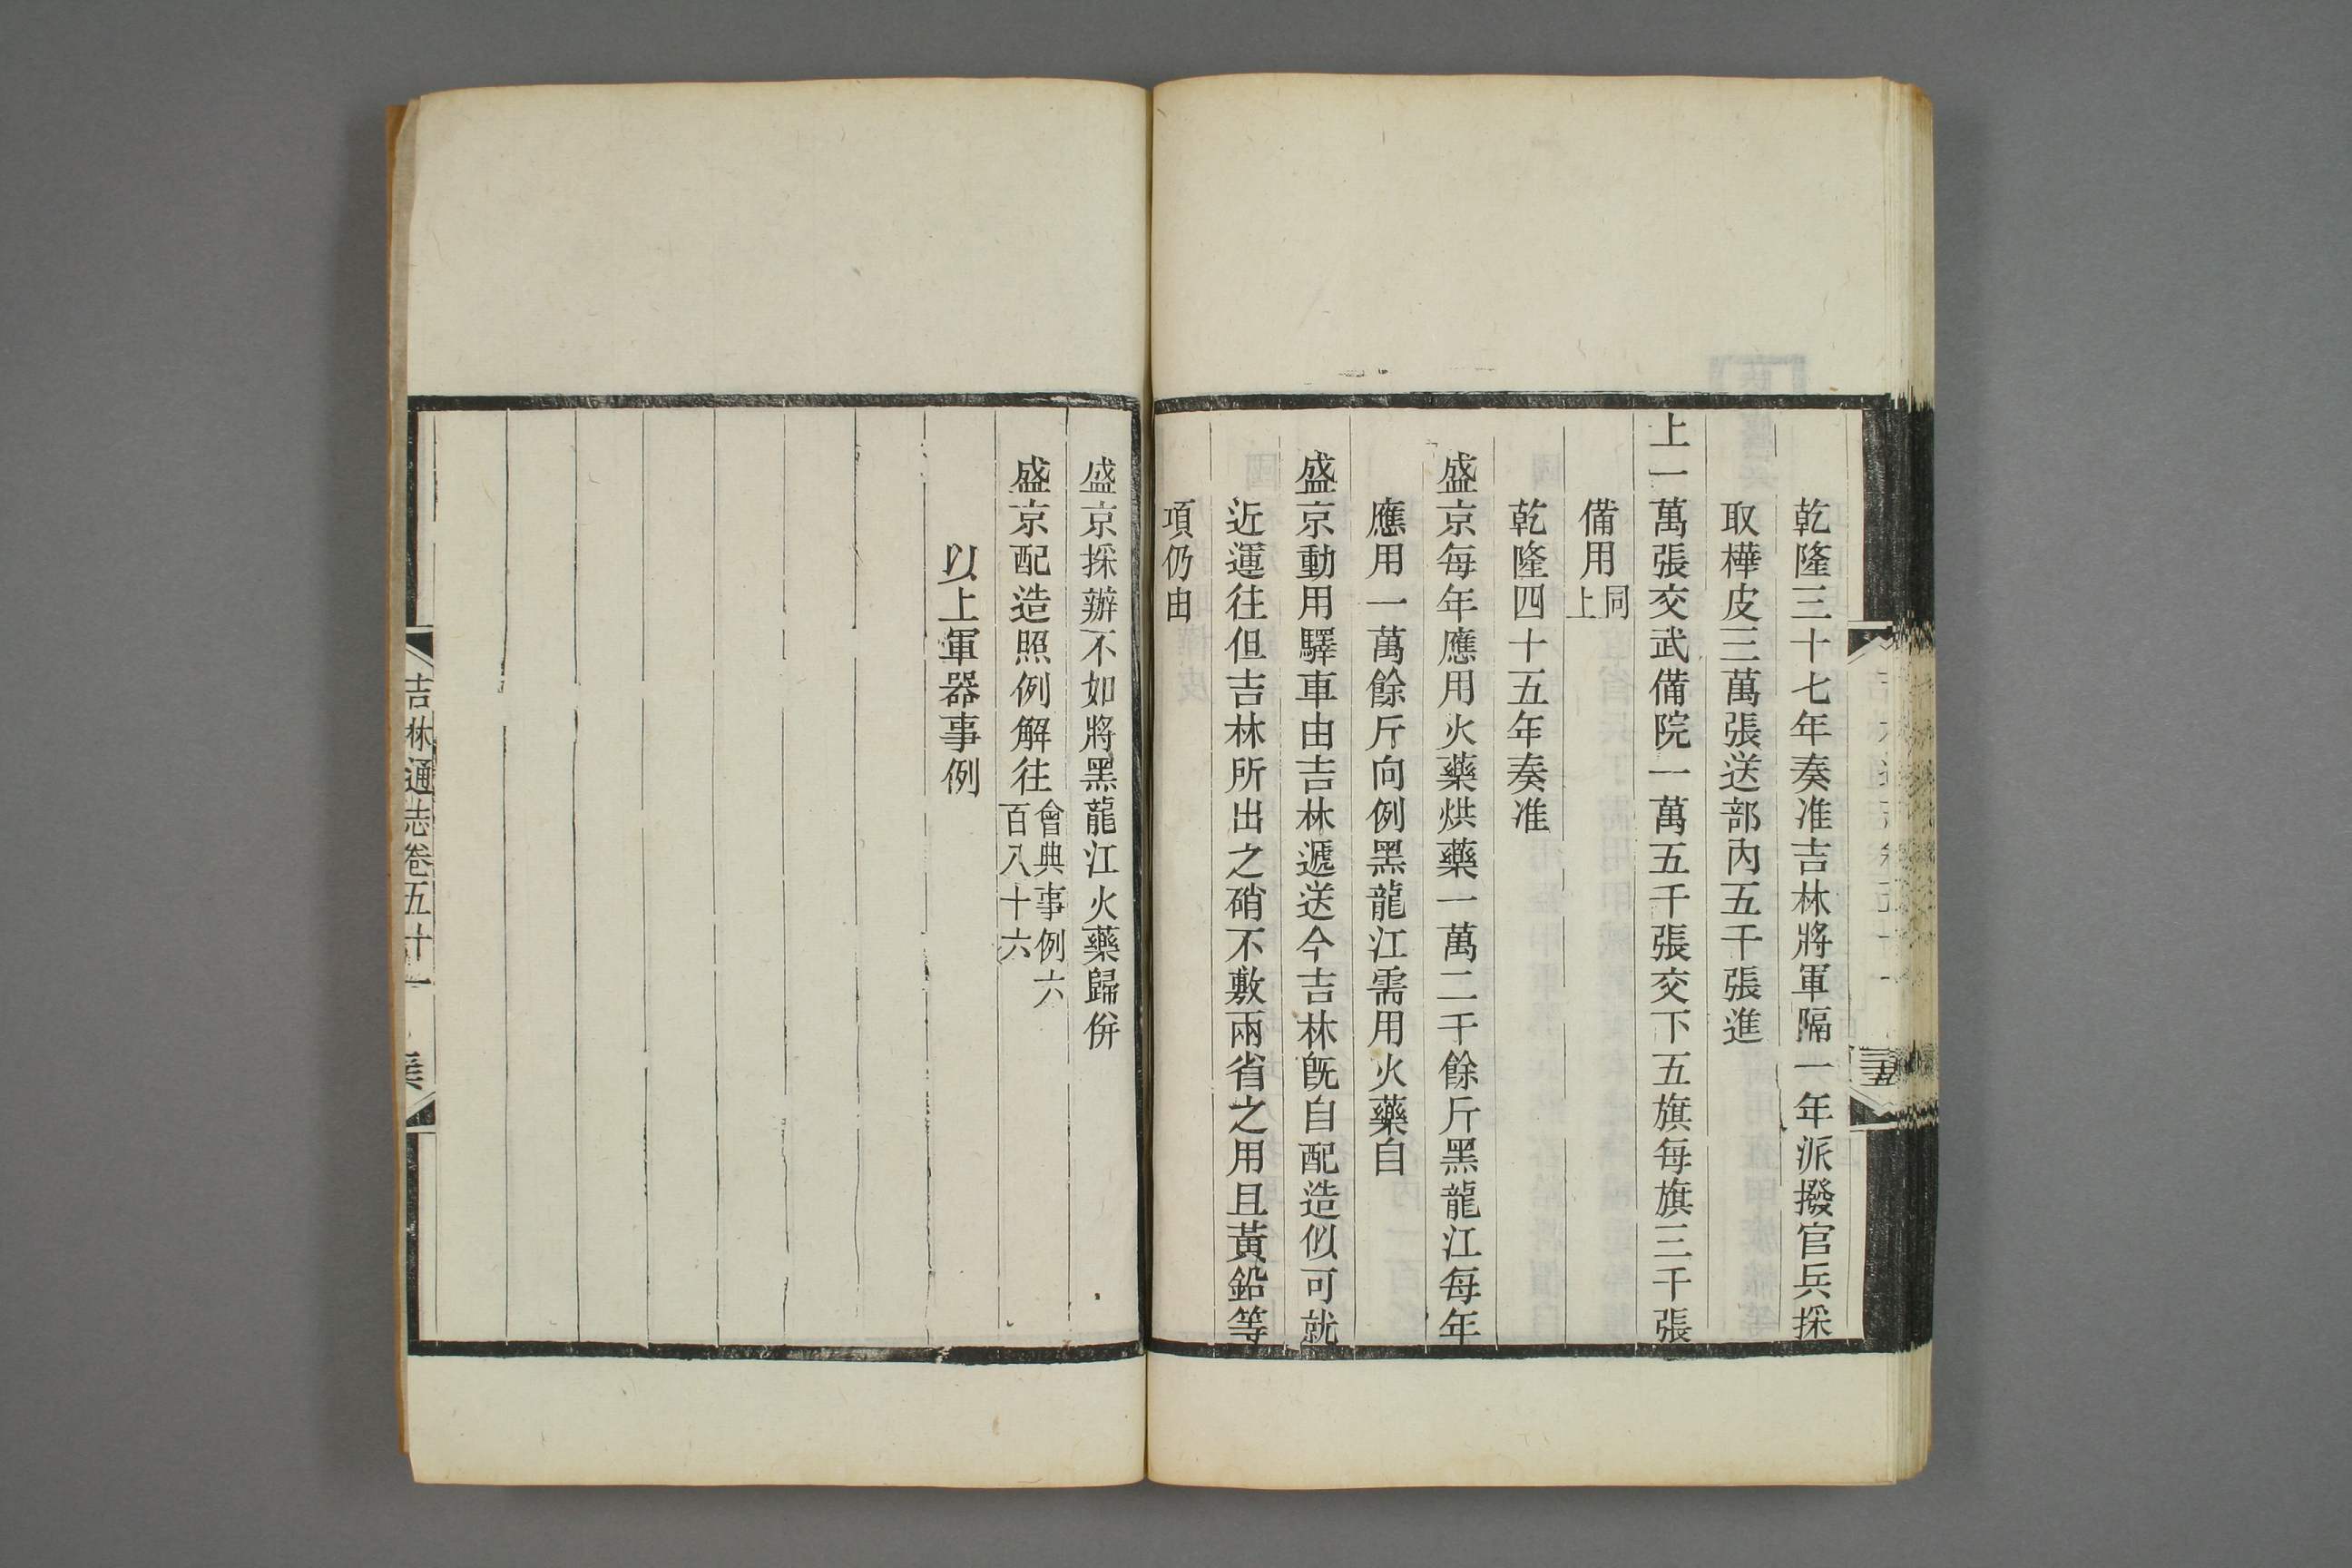 乾隆三十七年奏准吉林將軍隔一年派撥官兵採
取樺皮三萬張送部內五千張進
上一萬張交武備院一萬五千張交下五旗每旗三千張
備用同上
乾隆四十五年奏准
盛京每年應用火藥烘藥一萬二千餘斤黑龍江每年
應用一萬餘斤向例黑龍江需用火藥自
盛京動用驛車由吉林遞送今吉林既自配造似可就
近運往但吉林所出之硝不敷兩省之用且黃鉛等
項仍由
盛京採辦不如將黑龍江火藥歸併
盛京配造照例解往會典事例六百八十六
以上軍器事例
吉林通志卷五十一